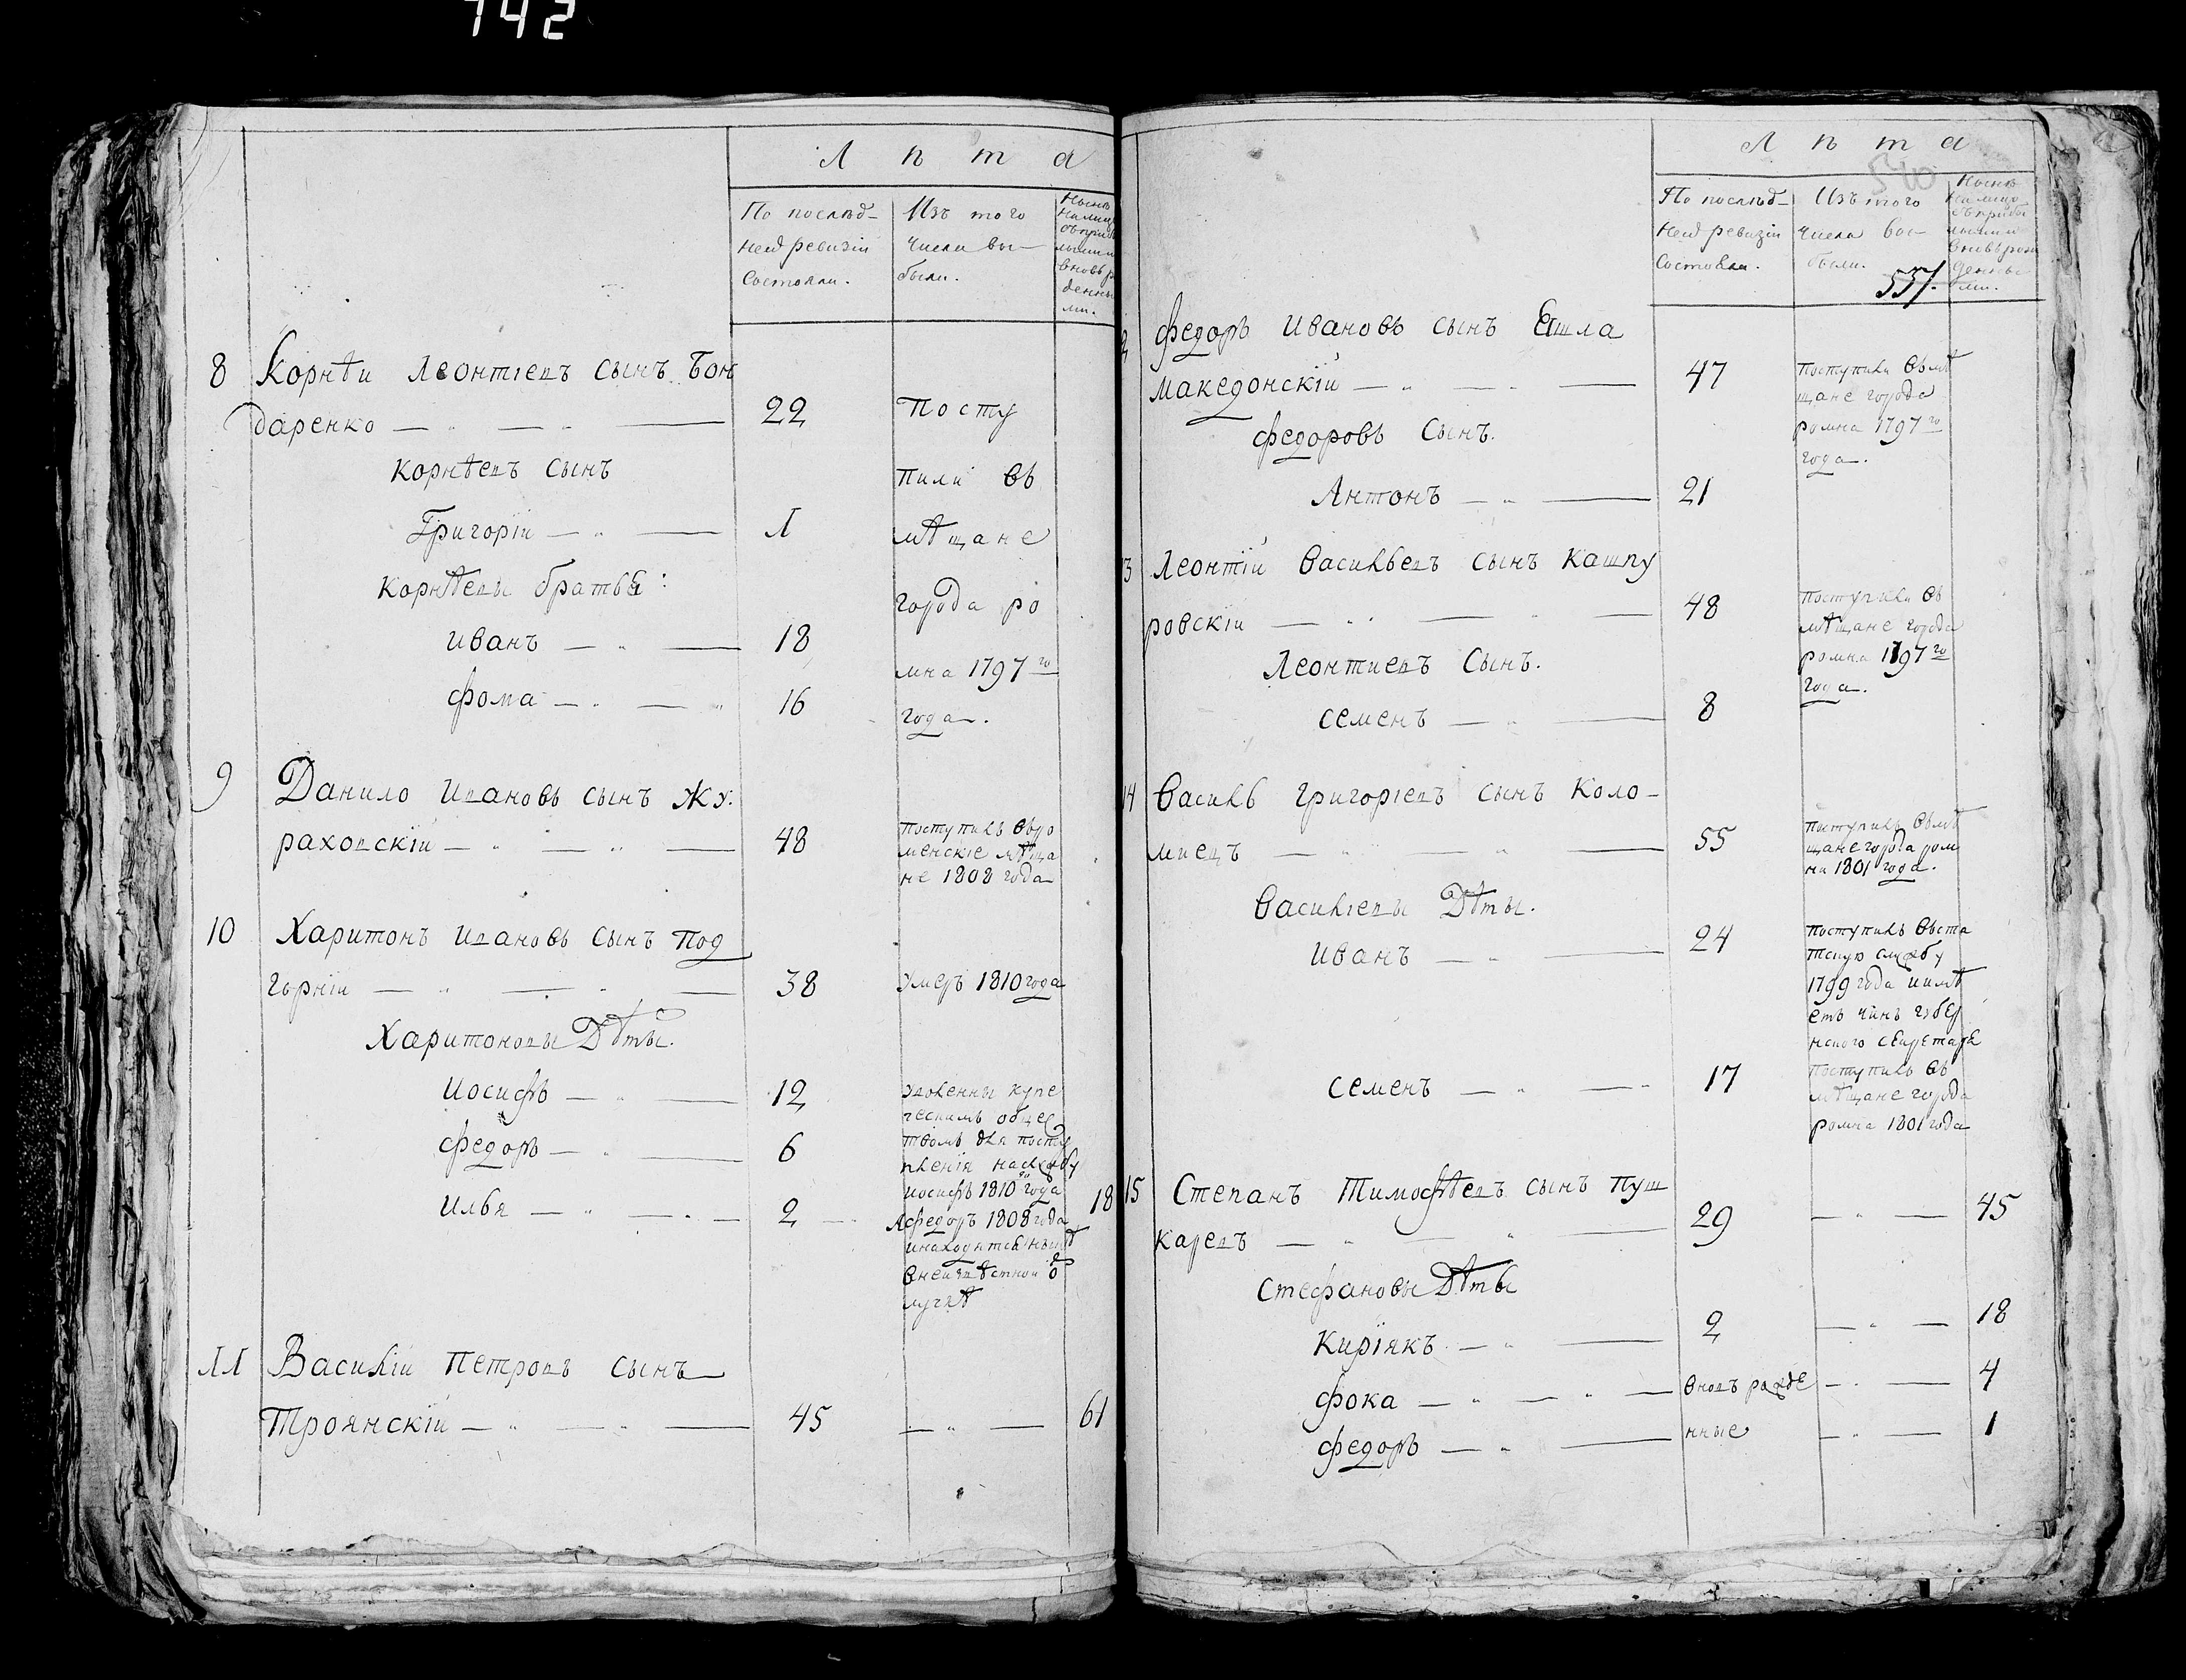 742
Лѣта
По послѣд-
ней ревизіи
состояли.
Изъ того
числа вы-
были.
Нынѣ
налиц
съ приб
лыми и
вновь р
денны
ми.
8 Корнѣи Леонтіевъ сынъ Бон
даренко — „ — „ — 22 Посту
Корнѣевъ сынъ пили въ
Григоріи — „ — 1 мѣщане
Корнѣевы братья: города ро
Иванъ — „ — 18 мна 1797го
Фома — „ — „ 16 года.
9 Данило Ивановъ сынъ Жу.
раховскіи — „ — „ — 48 поступилъ въ ро
менскіе мѣща
не 1808 года
10 Харитонъ Ивановъ сынъ Под
горніи — „ — „ — 38 умеръ 1810 года
Харитоновы Дѣты.
Иосифъ — „ — 12 уволенны купе
ческимъ общес
Федоръ — „ — 6 твомъ для посту
пленія на службу
Илья — „ — „ — 2 иосифъ 1810го года 18
а федоръ 1808 года
и находятся нынѣ
в неизвѣстной о
лучкѣ
11 Василіи Петровъ сынъ
Троянскій — „ — „ — 45 — „ — 61
Лѣта
540
По послѣд-
ней ревизіи
состояли.
Изъ того
числа вы-
были.
537.
Нынѣ
налицо
съ прибы
лыми и
вновь рож
денны
ми.
2 Федоръ Ивановъ сынъ Ешла
македонскій — „ — „ — 47 Поступили въ мѣ
щане города
Федоровъ сынъ. ромна 1797го
года.
Антонъ — „ — 21
13 Леонтій Васильевъ сынъ Кашпу
ровскіи — „ — „ — 48 Поступили въ
мѣщане города
Леонтиевъ Сынъ. ромна 1797го
года.
семенъ — „ — 8
14 Василь Григоріевъ сынъ Коло-
миецъ — „ — „ — 55 Поступилъ въ мѣ
щане города ром
на 1801 года.
Василіевы Дѣты.
Иванъ — „ — 24 поступилъ въ ста
тскую службу
1799 года и имѣ
етъ чинъ губер
нского секретаря
семенъ — „ — „ 17 Поступилъ въ
мѣщане города
ромна 1801 года
15 Степанъ Тимофѣевъ сынъ Пуш
каревъ — „ — „ — 29 — „ — 45
Стефановы Дѣты
Киріякъ — „ — 2 — „ — 18
Фока — „ — „ — вновь рожде — „ — 4
Федоръ — „ — нные — „ — 1